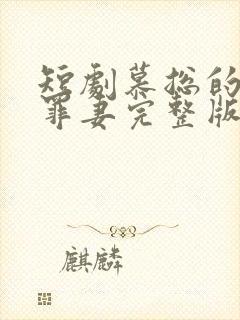 短劇慕總的
罪妻完整版
麒麟